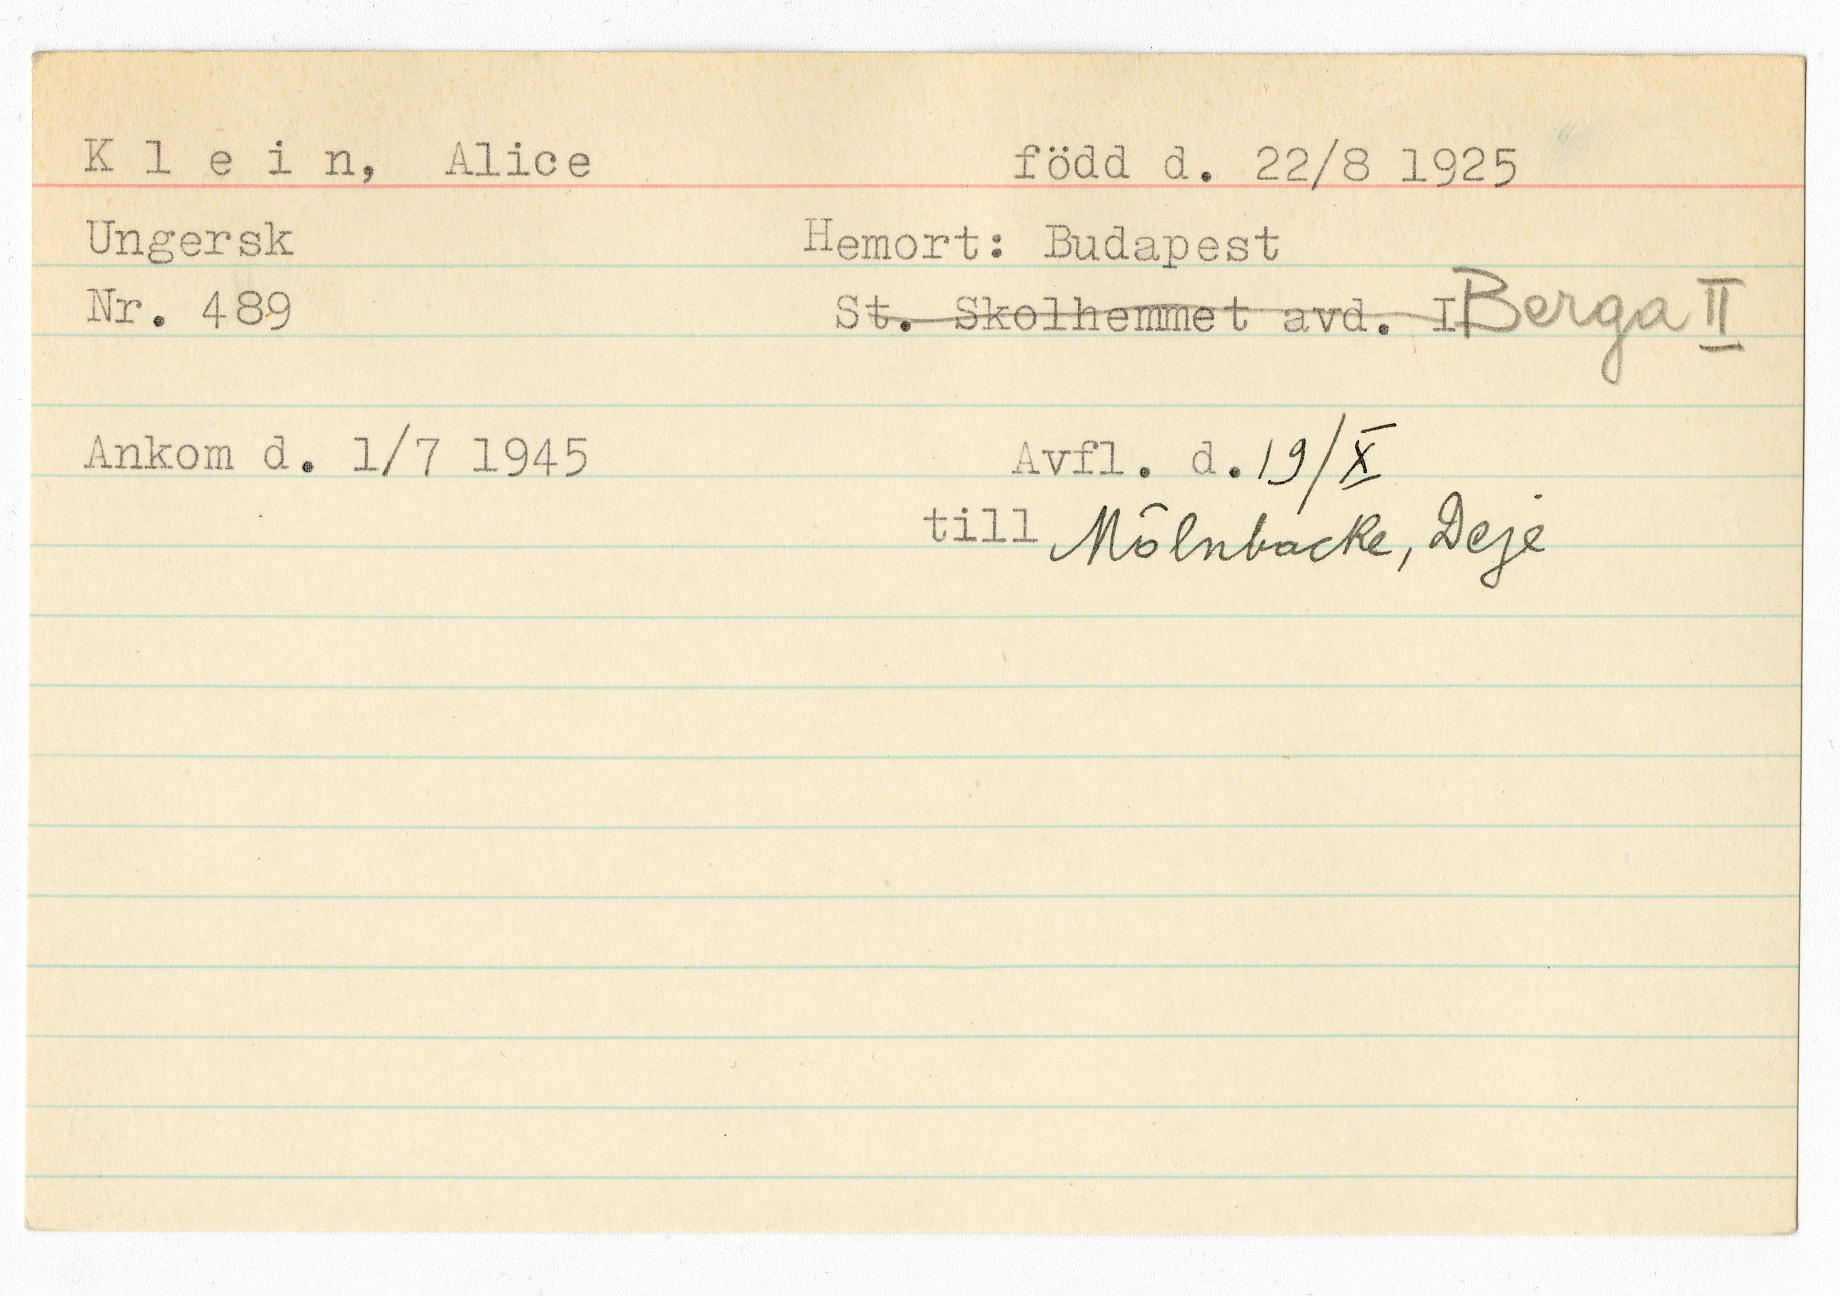 Klein, Alice född d. 22/8 1925
Ungersk Hemort: Budapest
Nr. 489 St. Skolhemmet avd. I Berga II
Ankom d. 1/7 1945 Avfl. d. 19/X
till Mölnbacke, Deje